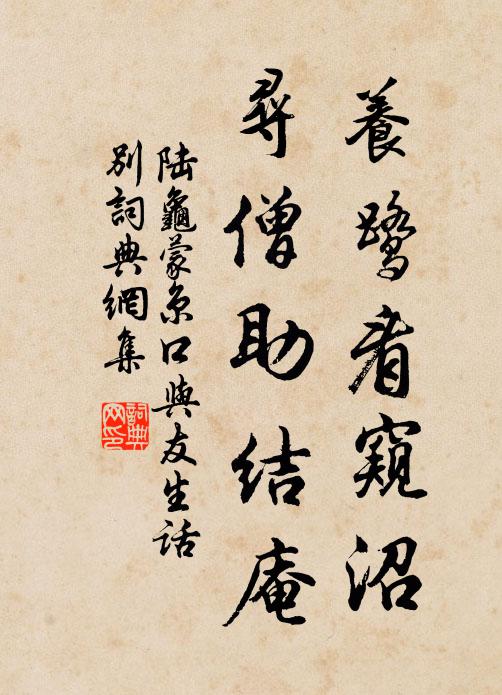 養鷺看窺沼
尋僧助結庵
陸龜蒙京口與友生話
別詞典網集
詞典網印